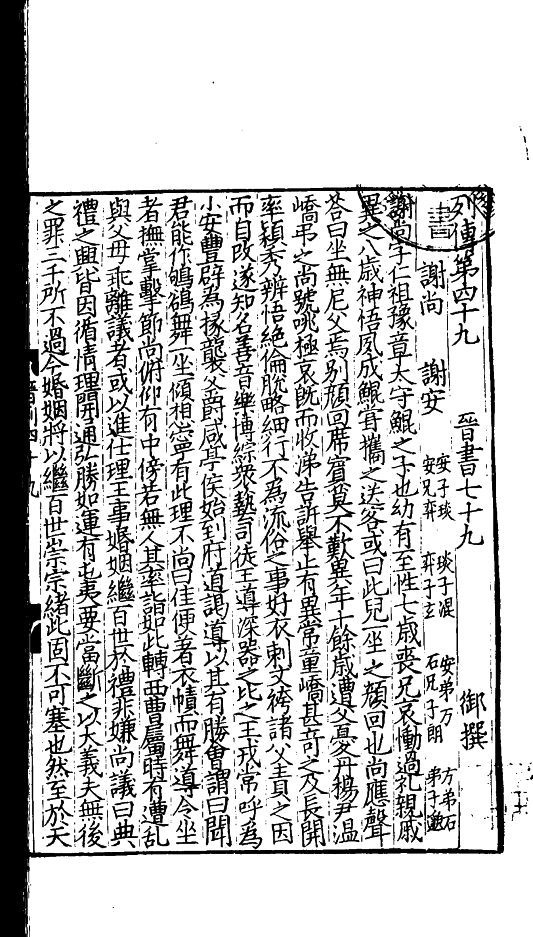 列傳第四十九 晉書七十九 御撰
謝尚 謝安 安子琰 琰子混 安兄奕 奕子玄 安弟万 万弟石 石兄子朗 弟子邈
謝尚字仁祖豫章太守鯤之子也幼有至性七歲喪兄哀慟過礼親戚
異之八歲神悟夙成鯤甞攜之送客或曰此兒一坐之顔回也尚應聲
荅曰坐無尼父焉别顔回席賓莫不歎異年十餘歲遭父憂丹楊尹温
嶠弔之尚號咷極哀旣而收涕告訴舉止有異常童嶠甚竒之及長開
率穎秀辨悟絶倫脫略細行不為流俗之事好衣刺文袴諸父責之因
而自改遂知名善音樂博綜衆藝司徒王導深器之比之王戎常呼為
小安豐辟為掾襲父爵咸亭侯始到府通謁導以其有勝會謂曰聞
君能作鴝鵒舞一坐傾想寧有此理不尚曰佳便著衣幘而舞導令坐
者撫掌擊節尚俯仰有中傍若無人其率詣如此轉西曹屬時有遭亂
與父母乖離議者或以進仕理王事婚姻繼百世於禮非嫌尚議曰典
禮之興皆因循情理開通弘勝如運有屯夷要當斷之以大義夫無後
之罪三千所不過今婚姻將以繼百世崇宗緒此固不可塞也然至於天